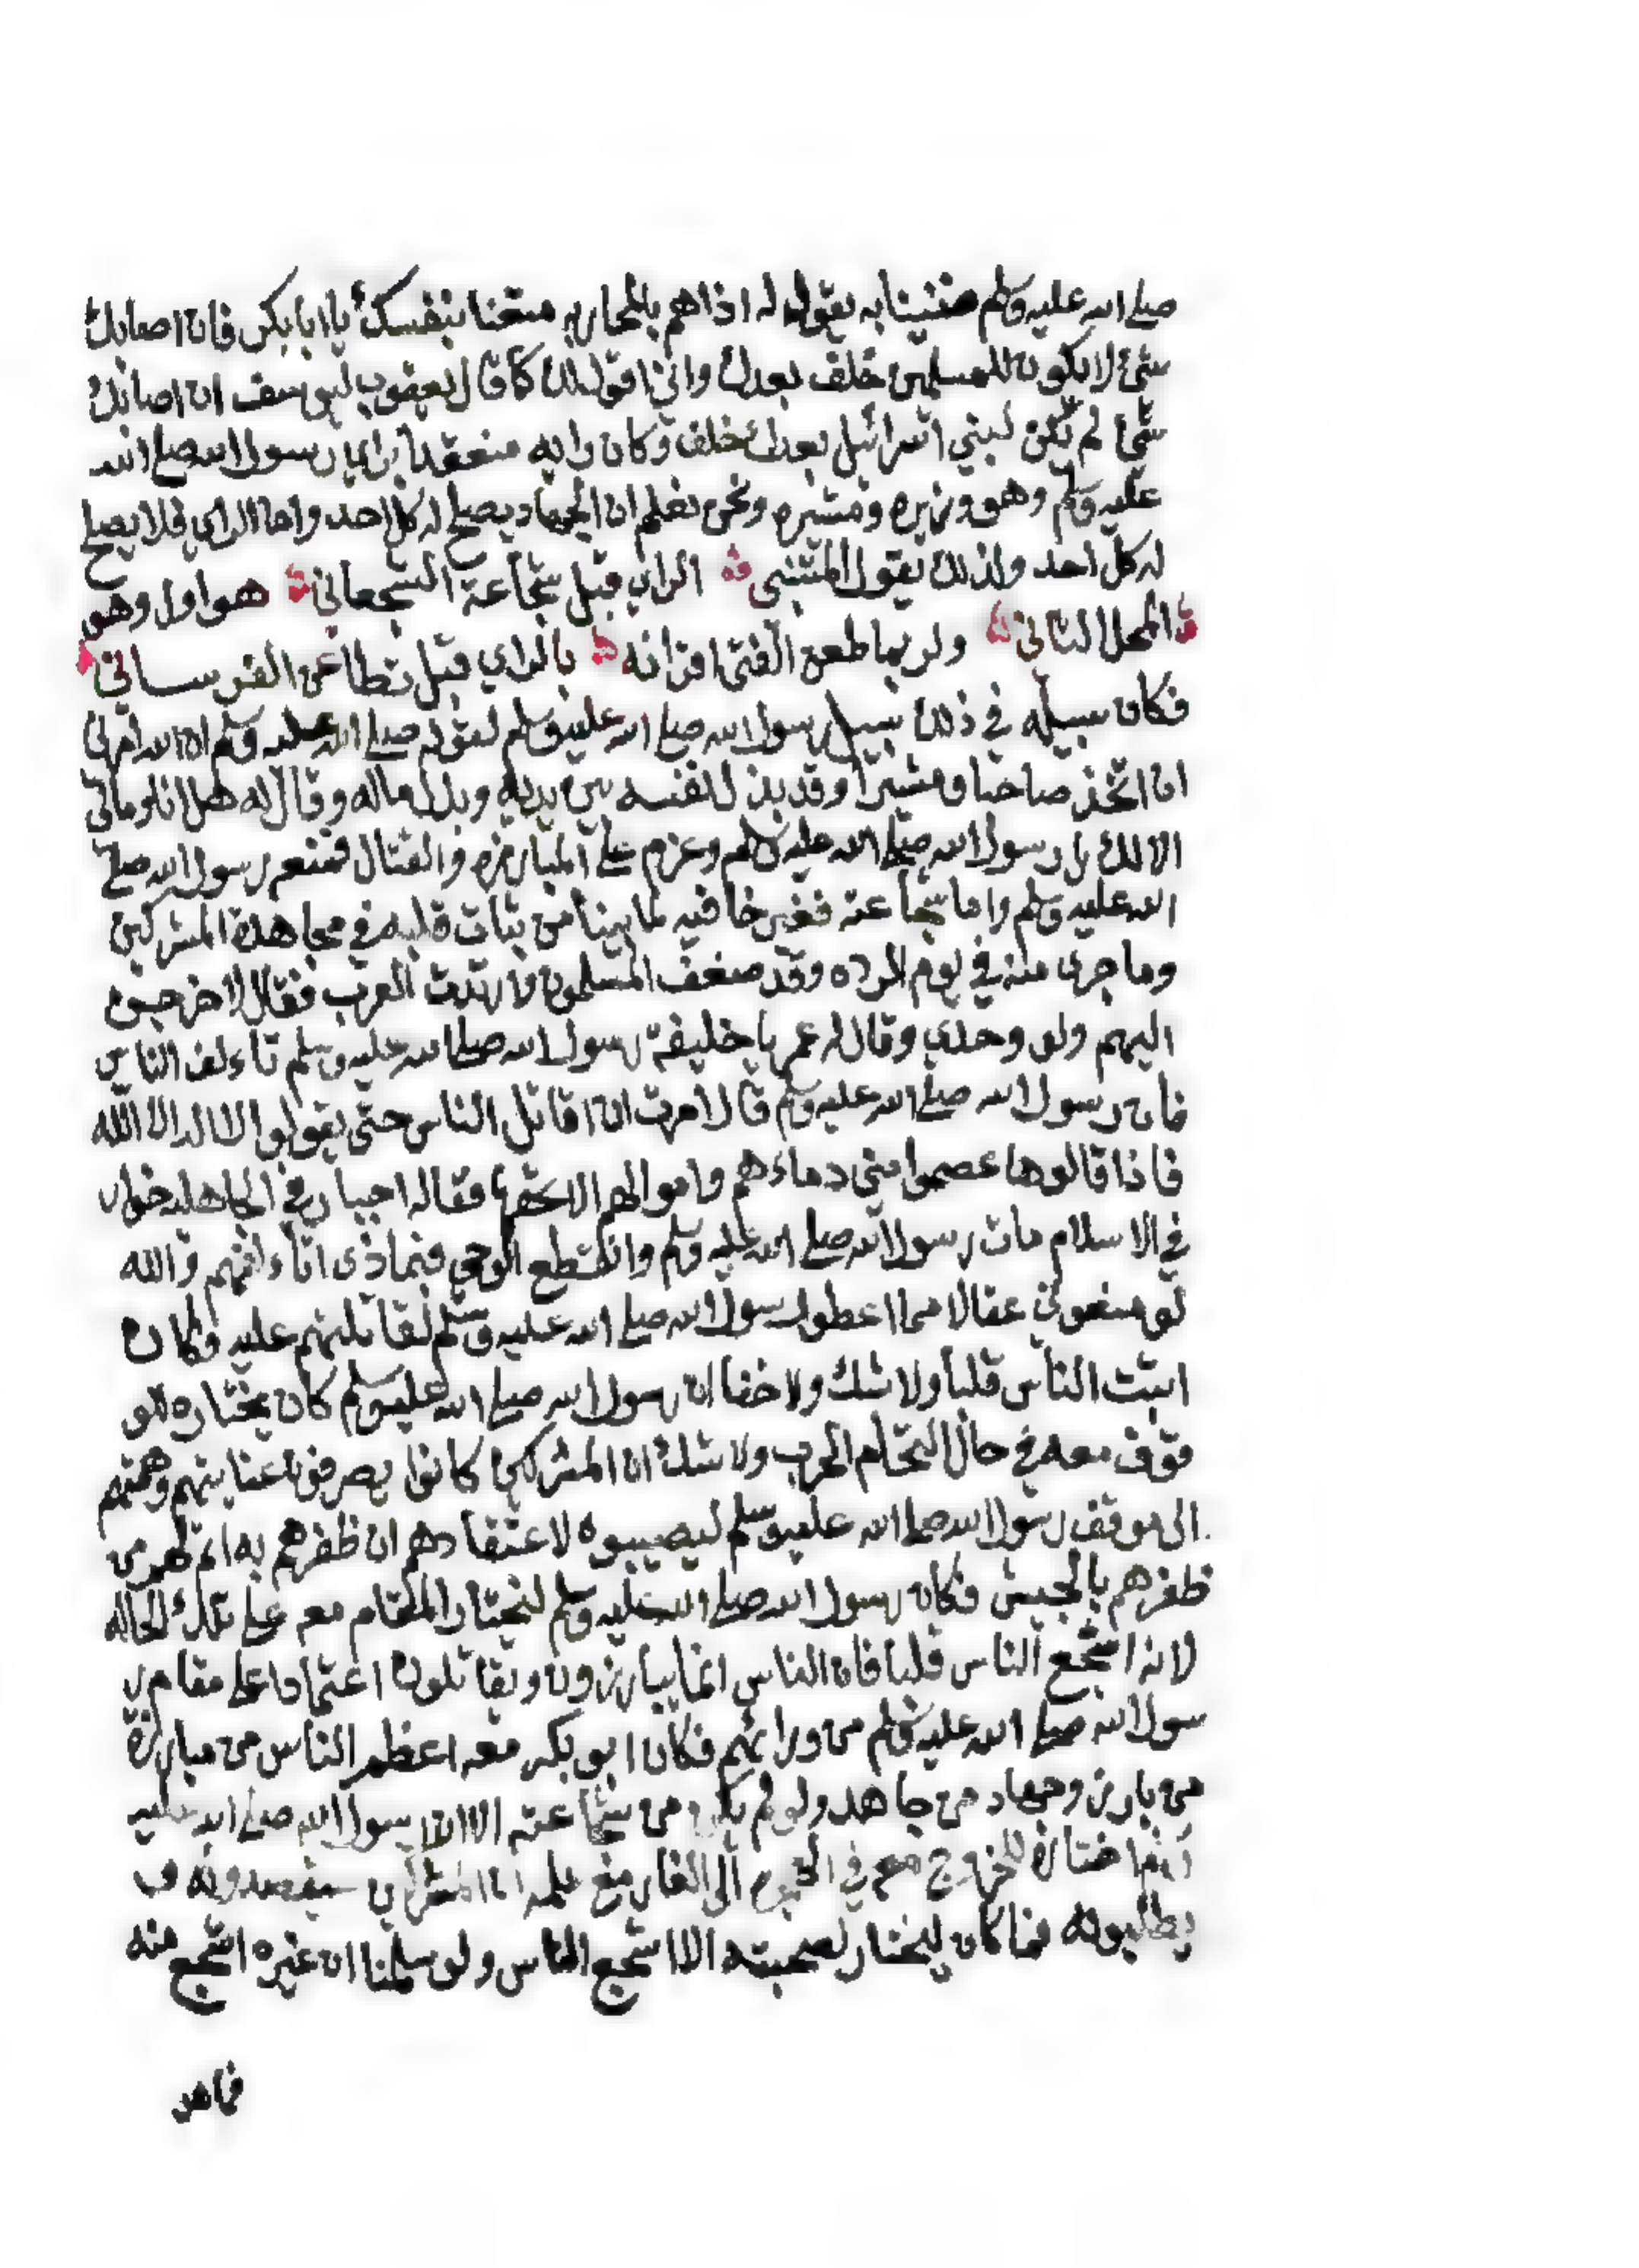 صلى الله عليه وسلم ضنينا به يقول له اذا هم بالمحاربه متعنا بنفسك يا ابا بكر فان اصابك
شئ لا يكون للمسلمين خلف بعدك واني اقول لك كما قال يعقوب ليوسف ان اصابك
شئ لم يكن لبني اسرائيل بعدك خلف وكان رايه منعقدا براي رسول الله صلى الله
عليه وسلم وهو وزيره ومشيره ونحن نعلم ان الجهاد يصلح له كل احد واما الراي فلا يصلح
له كل احد ولذلك يقول المتنبي الراي قبل شجاعة الشجعاني هو اول وهو
المحل الثاني ولربما طعن الفتى اقرانه بالراي قبل تطاعن الفرساني
فكان سبيله في ذلك سبيل رسول الله صلى الله عليه وسلم لقوله صلى الله عليه وسلم ان الله امرني
ان اتخذ صاحبا ومشيرا وقد بذل نفسه بين يديه وبذل ماله وقال له هل انا ومالي
الا لك يا رسول الله صلى الله عليه وسلم وعزم على المبارزه والقتال فمنعه رسول الله صلى
الله عليه وسلم واما شجاعته فغير خافيه لما بينا من ثبات قلبه في مجاهدة المشركين
وما جرى منه في يوم الرده وقد ضعف المسلمون وارتدت العرب فقال لاخرجن
اليهم ولو وحدي وقال له عمر يا خليفة رسول الله صلى الله عليه وسلم تاءلف الناس
فان رسول الله صلى الله عليه وسلم قال امرت ان اقاتل الناس حتى يقولوا لا اله الا الله
فاذا قالوها عصموا مني دماءهم واموالهم الا بحقها فقال له اجبار في الجاهليه خوار
في الاسلام مات رسول الله صلى الله عليه وسلم وانقطع الوحي فبماذى اتاءلفهم والله
لو منعوني عقالا مما اعطوا رسول الله صلى الله عليه وسلم لقاتلتهم عليه وكان
اثبت الناس قلبا ولا شك ولا خفا ان رسول الله صلى الله عليه وسلم كان يختاره للو
قوف معه في حال التحام الحرب ولا شك ان المشركين كانوا يصرفون عنايتهم وهمتهم
الى موقف رسول الله صلى الله عليه وسلم ليصيبوه لاعتقادهم ان ظفرهم به اتم ظهر من
ظفرهم بالجيش فكان رسول الله صلى الله عليه وسلم ليختار المقام معه على تلك الحاله
لانه اشجع الناس قلبا فان الناس انما يبارزون ويقاتلون اعتمادا على مقام ر
سول الله صلى الله عليه وسلم من ورائهم فكان ابو بكر معه اعظم الناس من مبارزة
من بارز وجهاد من جاهد ولو لم يكن من شجاعته الا ان رسول الله صلى الله عليه
اختاره للخروج معه في الى الغار مع علمه ان المشركين سيقصدونه و
يطلبونه فما كان ليختار لصحبته الا اشجع الناس ولو سلمنا ان غيره اشجع منه
فماهو